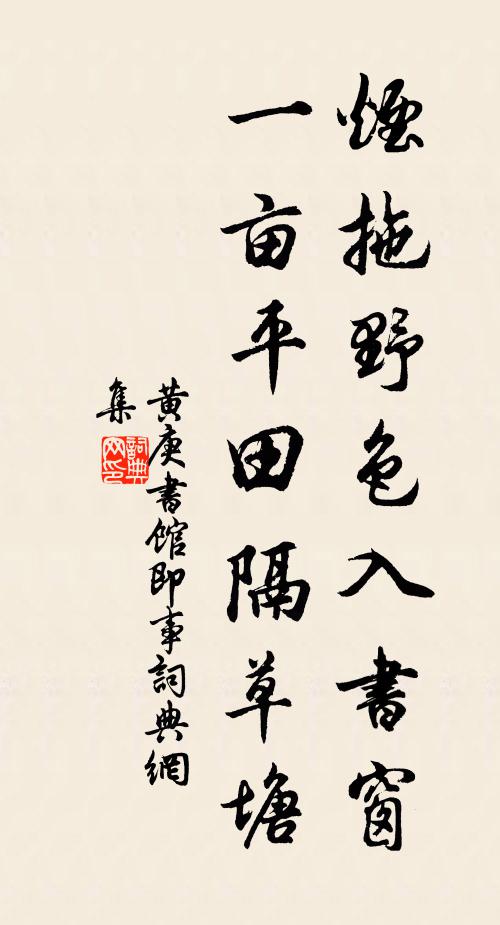 煙拖野色入書窗
一亩平田隔草塘
黄庚書館即事詞典網
集
詞典網印